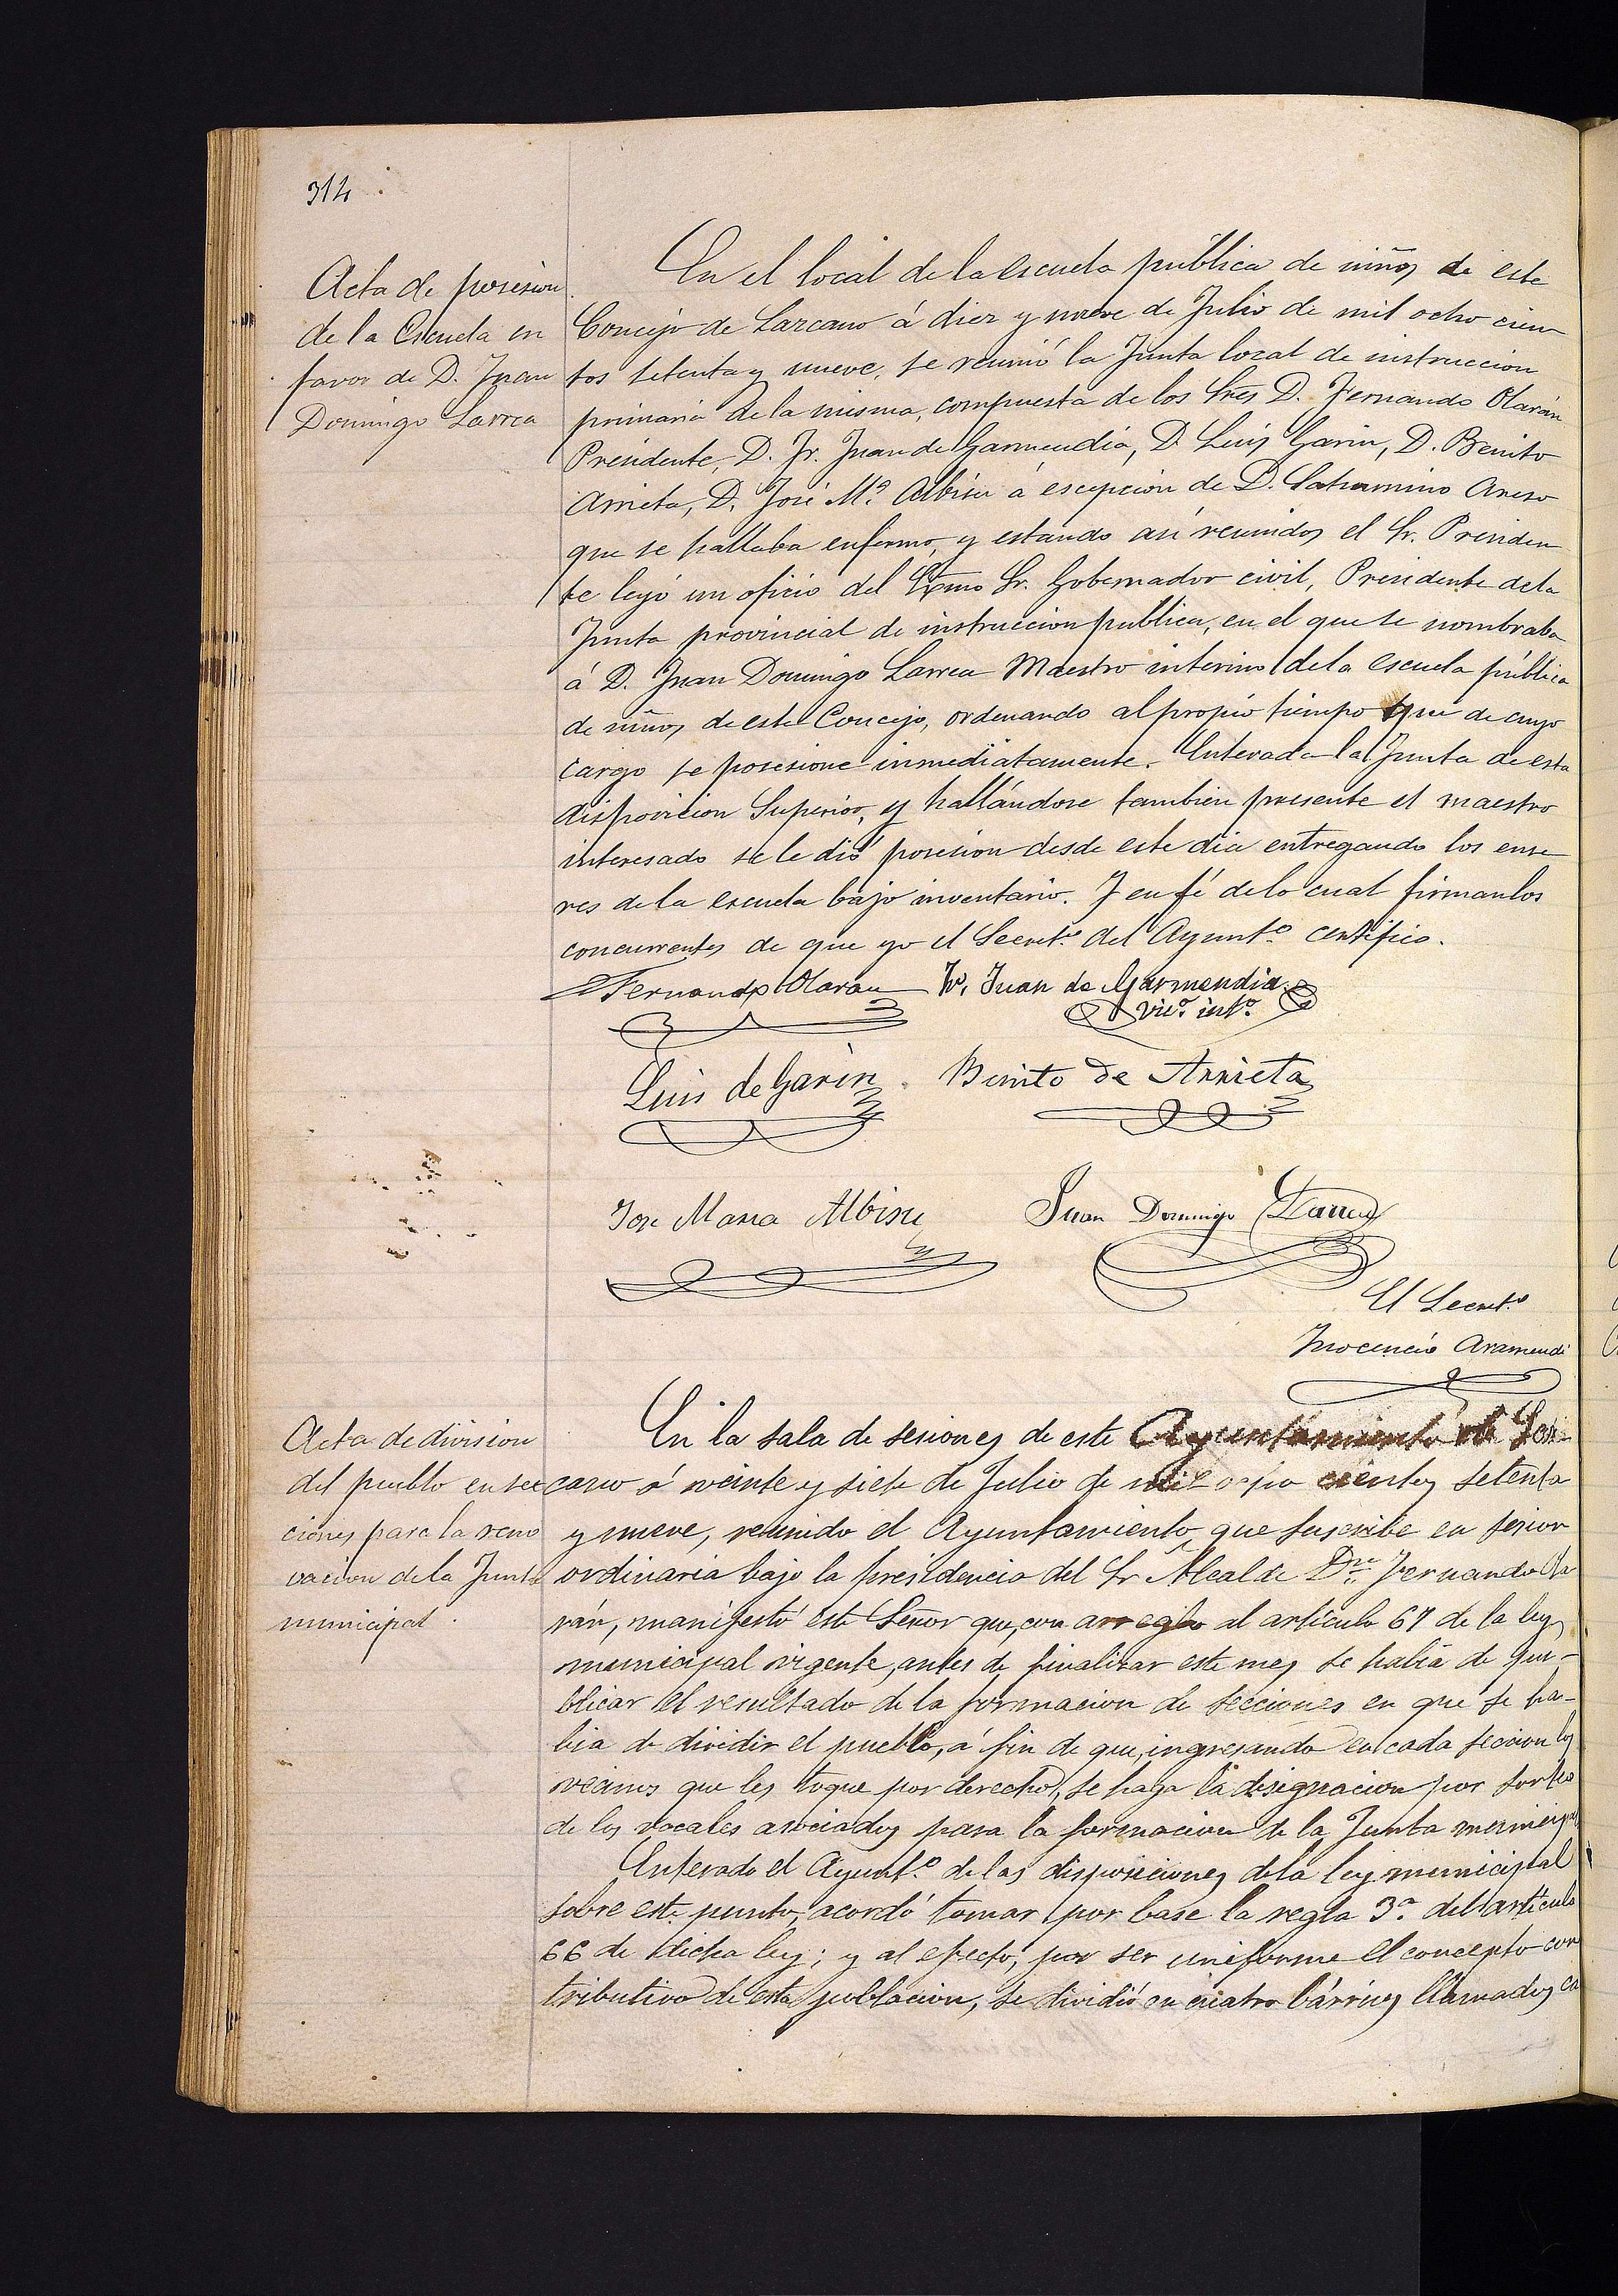 314
Acta de posesion
de la Escuela en
favor de D. Juan
Domingo Larrea
En el local de la escuela pública de niños de este
Concejo de Lazcano á diez y nueve de Julio de mil ocho cien
tos setenta y nueve, se reunió la Junta local de instruccion
primaria de la misma, compuesta de los Sres D. Fernando Olarán
Presidente, D. Fr. Juan de Garmendia, D. Luis Garin, D. Benito
Arrieta, D. José Mª Albisu á escepcion de D. Saturnino Areso
que se hallaba enfermo, y estando asi reunidos el Sr. Presiden
te leyó un oficio del Exmo Sr. Gobernador civil, Presidente dela
Junta provincial de instruccion publica, en el que se nombraba
á D. Juan Domingo Larrea Maestro interino dela escuela pública
de niños de este Concejo, ordenando al propio tiempo que de cuyo
cargo se posesione inmediatamente. Enterada la Junta de esta
disposicion Superior, y hallándose tambien presente el maestro
interesado se le dió posesion desde este dia entregando los ense
res dela escuela bajo inventario. Y en fé delo cual firmanlos
concurrentes de que yo el Secretº del Ayuntº certifico.
Fernando Olarán Fr. Juan de Garmendia
Vicº intº
Luis de Garin Benito de Arrieta
Jose Maria Albisu Juan Domingo Larrea
El Secretº
Inocencio Aramendi
Acta de division
del pueblo en sec
ciones para la reno
vacion dela Junta
municipal.
En la sala de sesiones de este Ayuntamiento de Laz-
cano á veinte y siete de Julio de mil ocho cientos setenta
y nueve, reunido el Ayuntamiento que suscribe en sesion
ordinaria bajo la presidencia del Sr Alcalde Dn. Fernando Ola
rán, manifestó este Señor que, con arreglo al artículo 67 de la ley
municipal vigente, antes de finalizar este mes se habia de pu-
blicar el resultado de la formacion de secciones en que se ha-
bia de dividir el pueblo, á fin de que, ingresando en cada seccion los
vecinos que les toque por derecho, se haga la designacion por sorteo
de los vocales asociados para la formacion de la Junta municipal
Enterado el Ayuntº de las disposiciones dela ley municipal
sobre este punto, acordó tomar por base la regla 3ª del artículo
66 de dicha ley; y al efecto, por ser uniforme el concepto con
tributivo de esta poblacion, se dividió en cuatro bárrios llamados ca